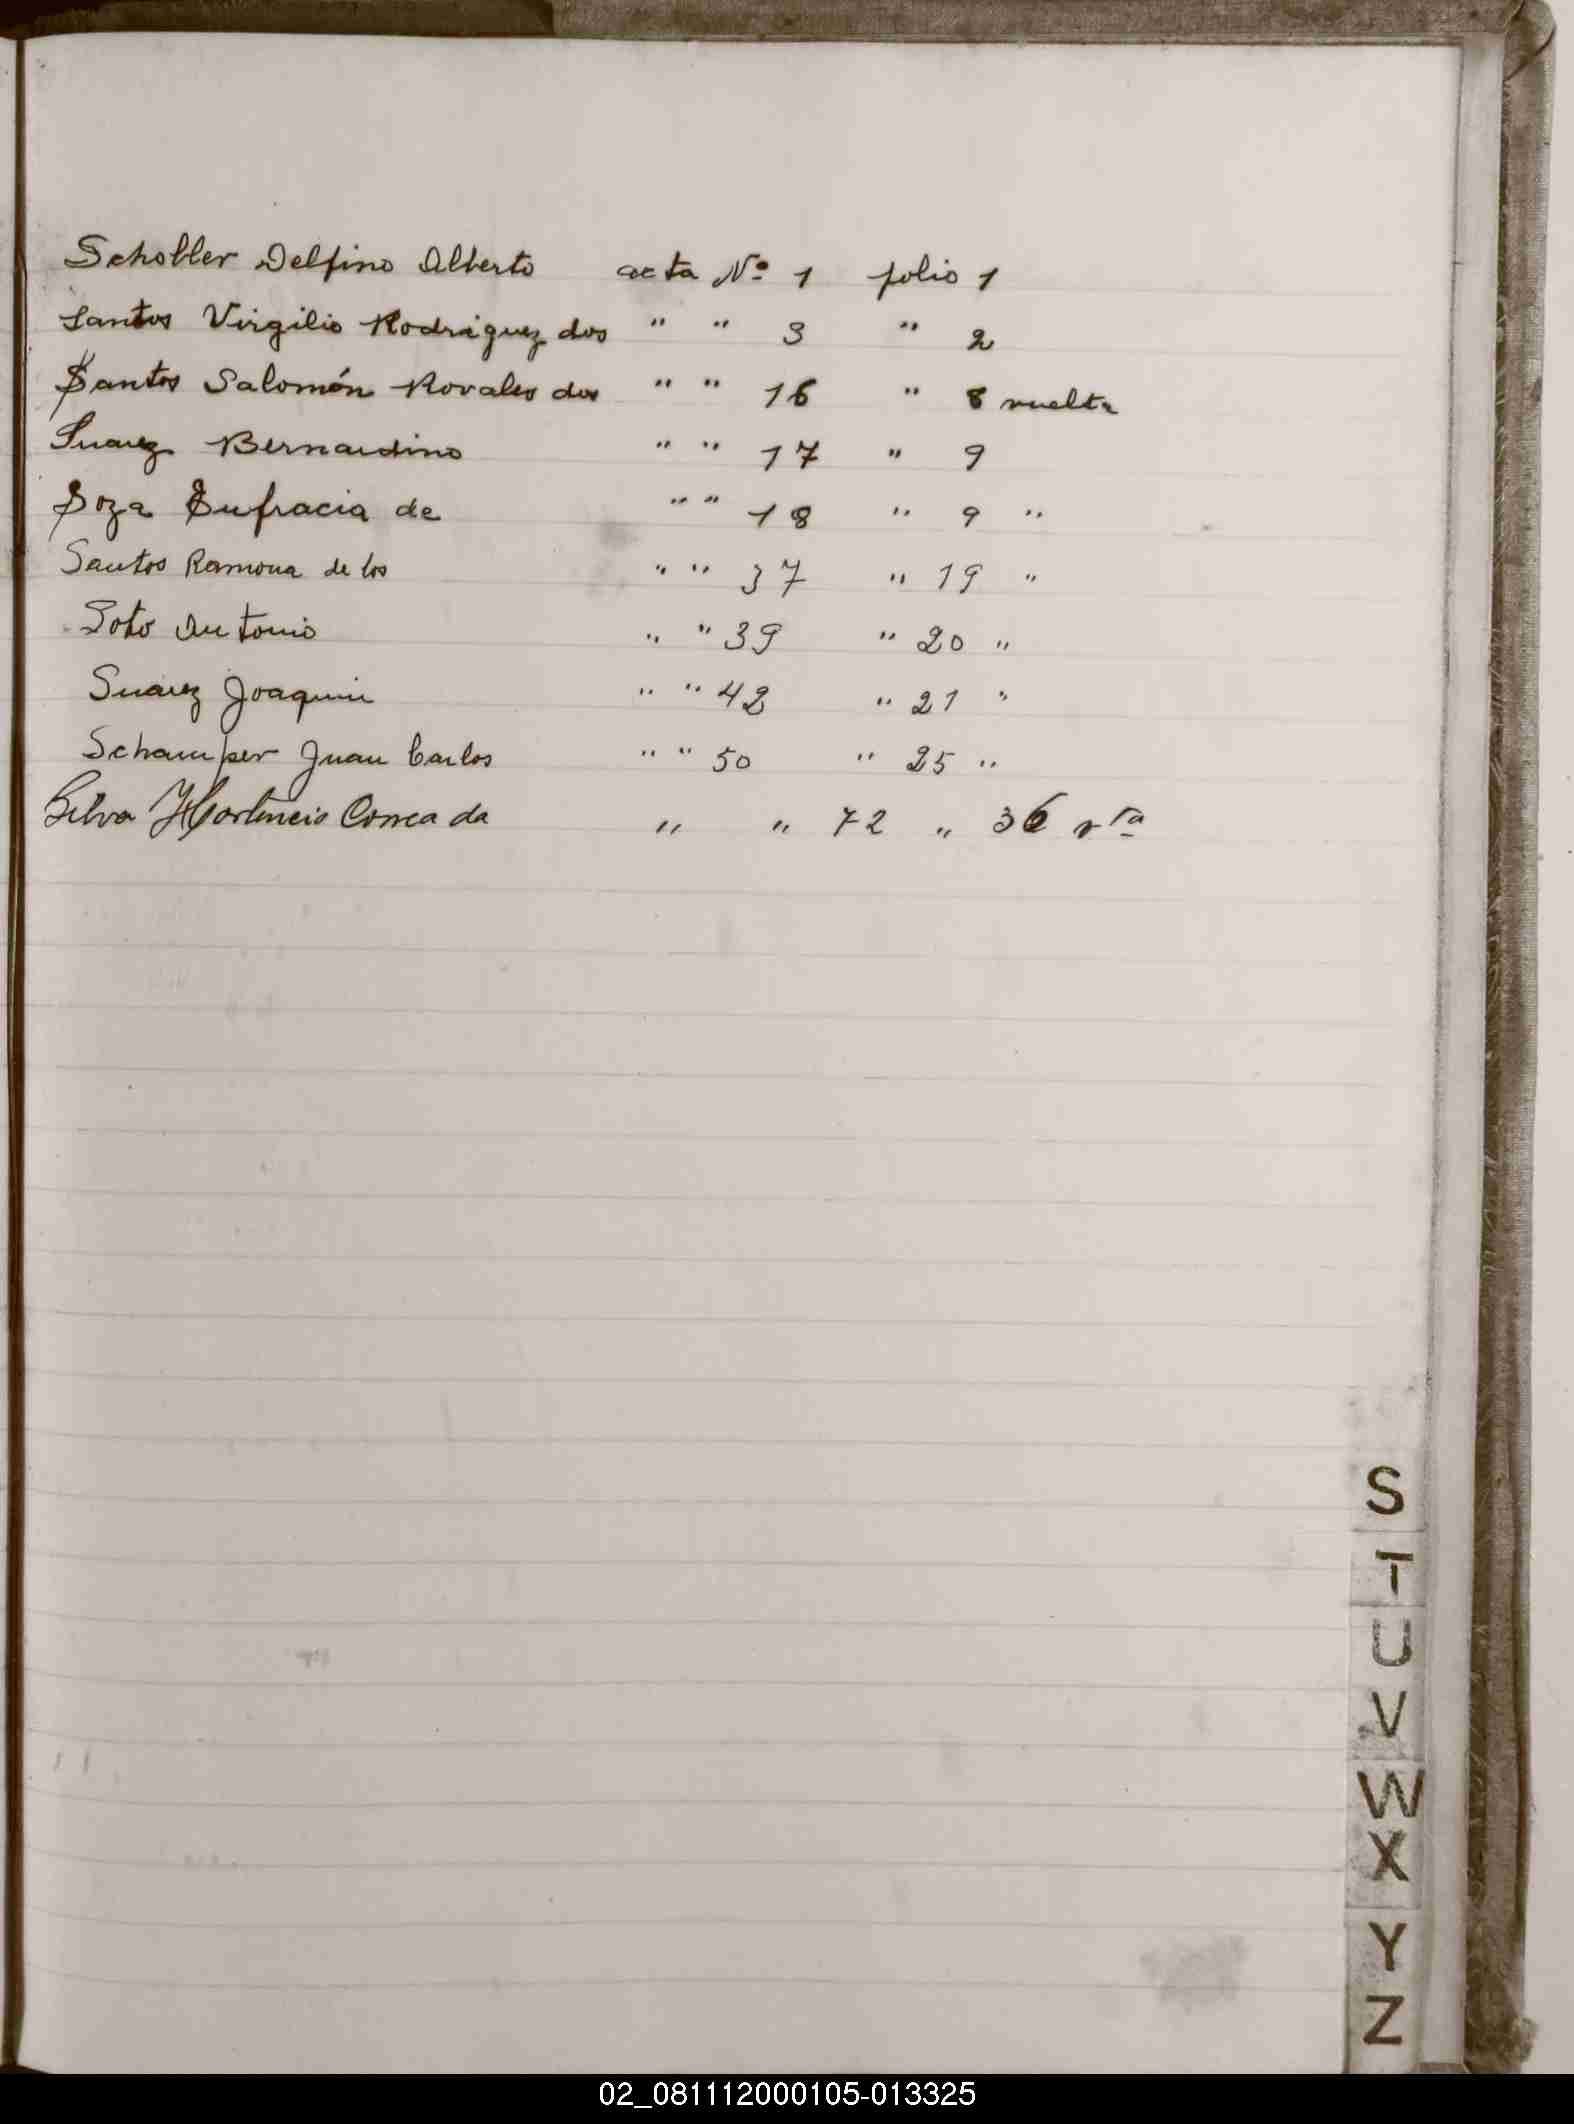 Schobler Delfino Alberto acta Nº 1 folio 1
Santos Virgilio Rodriguez dos " " 3 " 2
Santos Salomón Rovales dos " " 16 " 8 vuelta
Suarez Bernardino " " 17 " 9
Soza Eufracia de " " 18 " 9 "
Santos Ramona de los " " 37 " 19 "
Soto Antonio " " 39 " 20 "
Suarez Joaquin " " 42 " 21 "
Schamper Juan Carlos " " 50 " 25 "
Silva Hortencio Correa da " " 72 " 36 vta
S
T
U
V
W
X
Y
Z
02_081112000105-013325